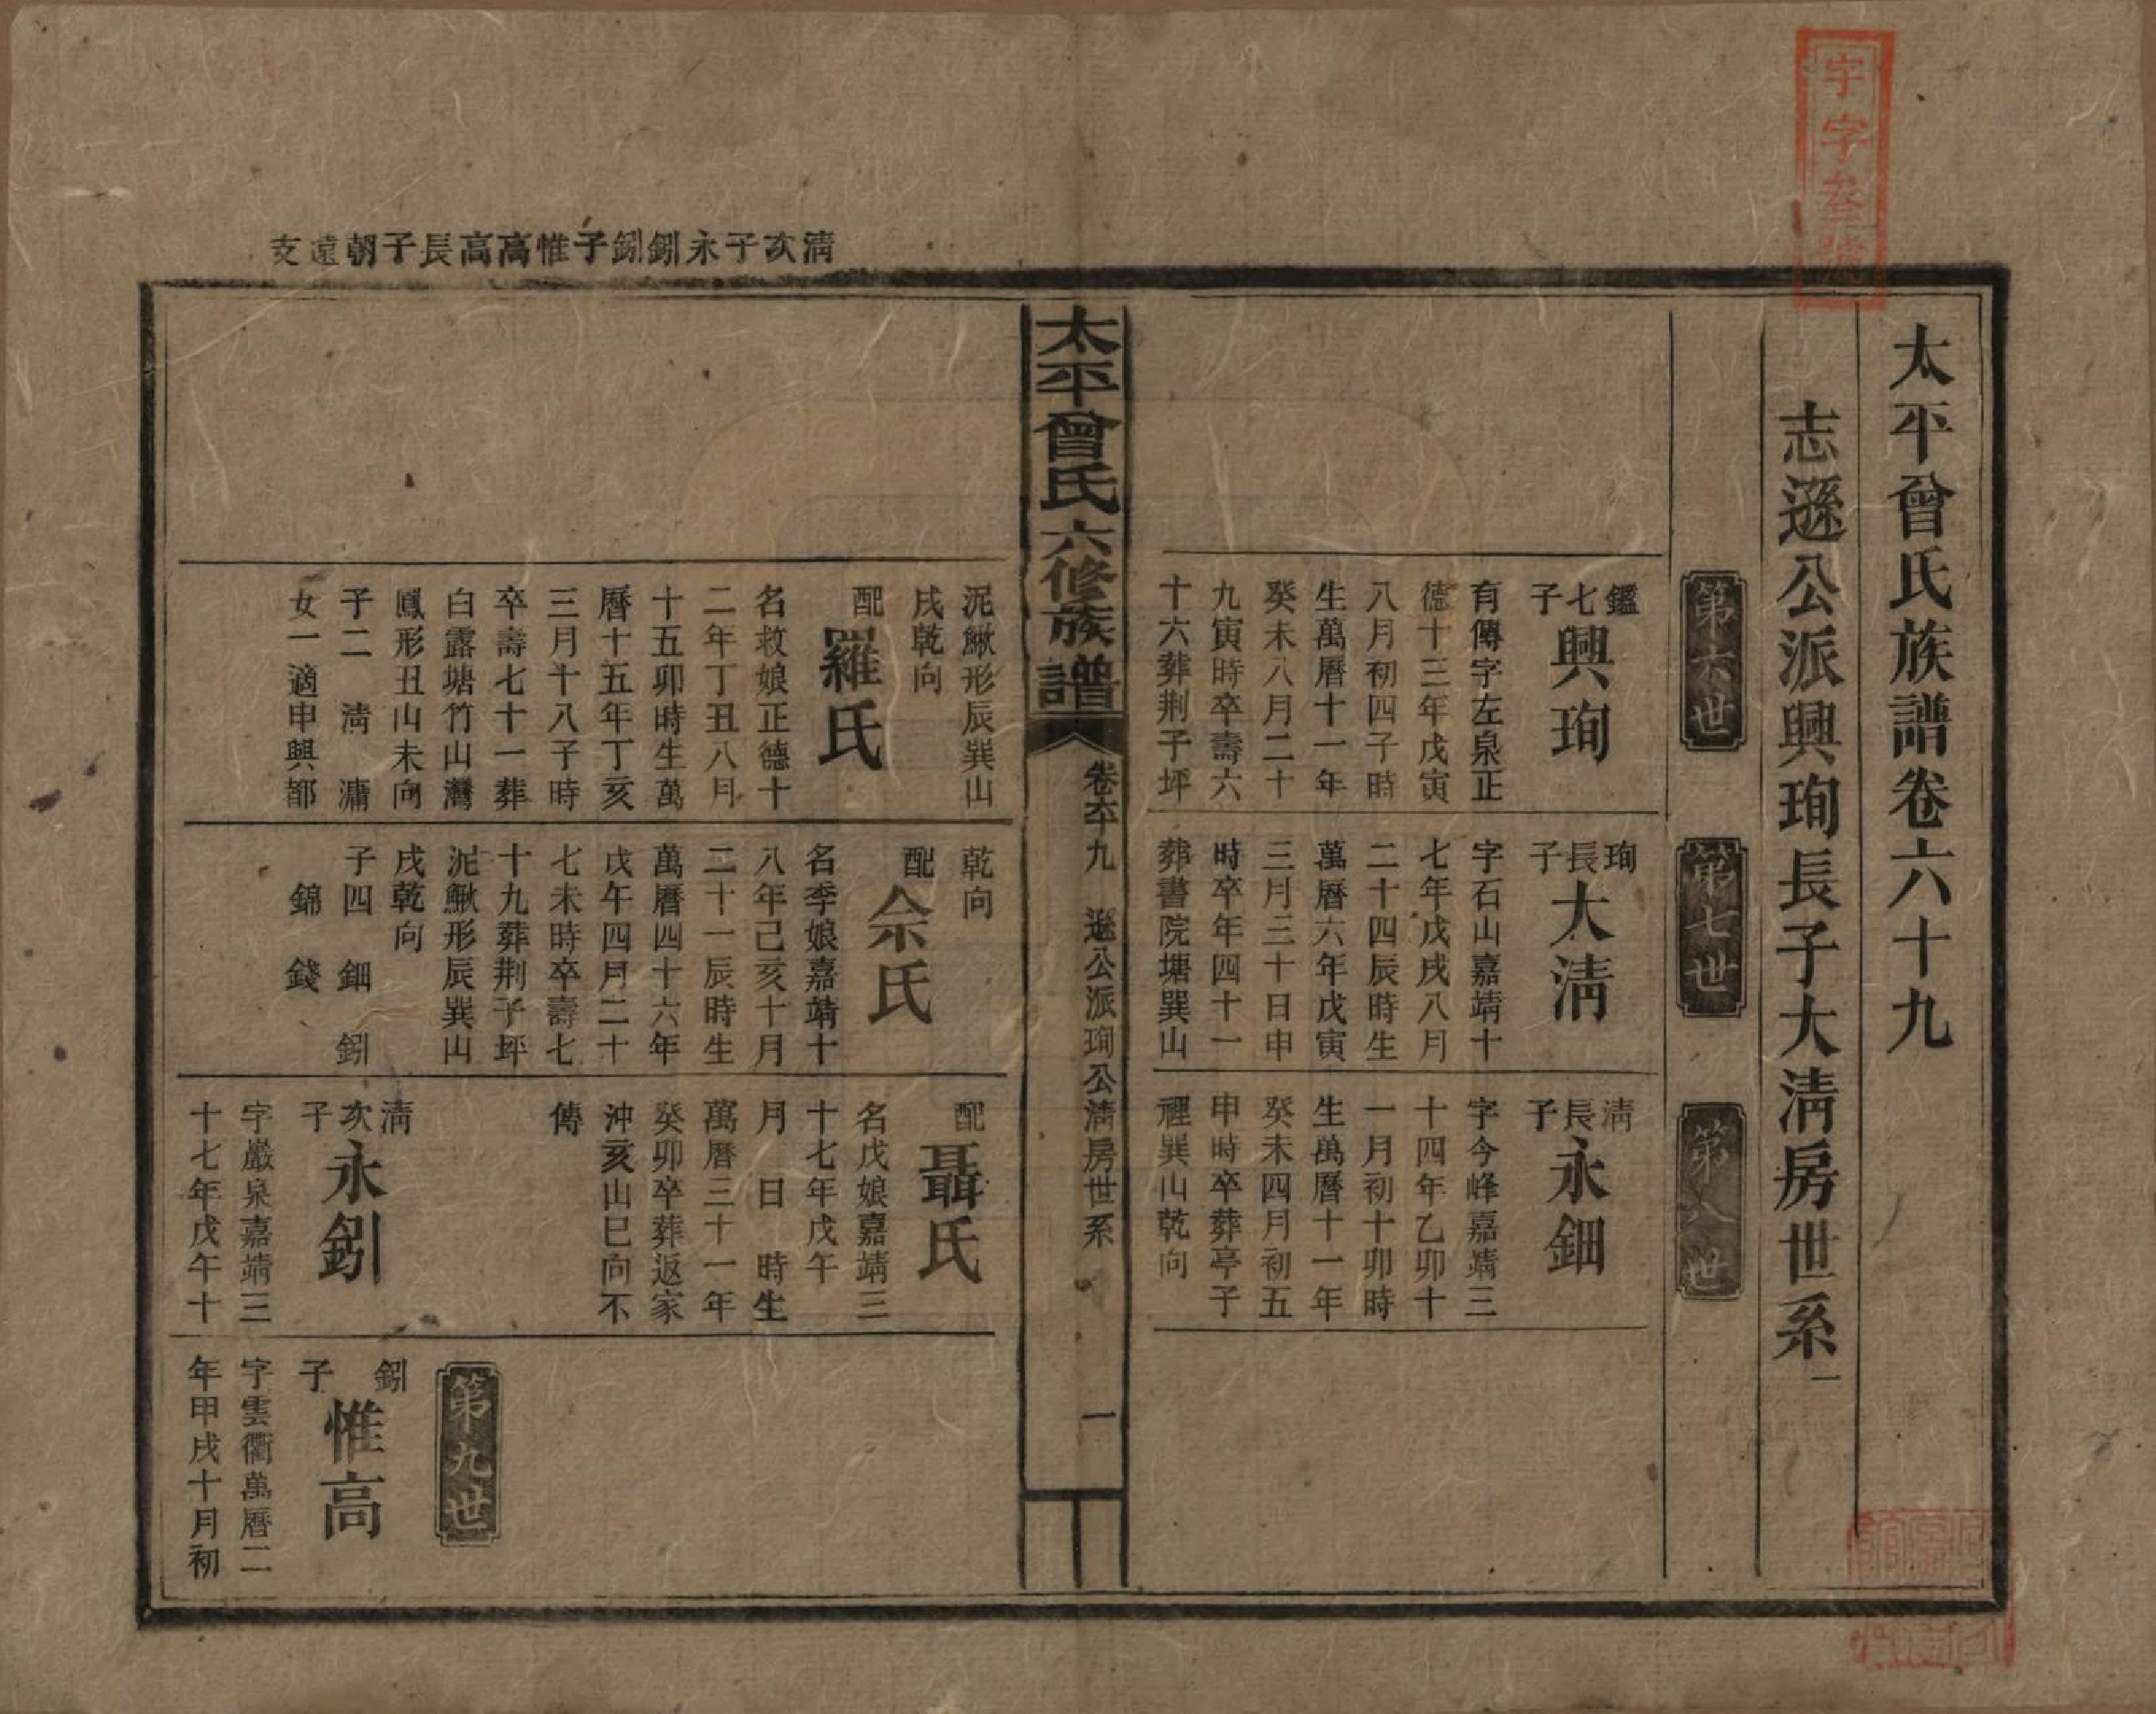 宇字叁號
太平曾氏族譜卷六十九
志遜公派興珣長子大清房世系一
第六世
第七世
第八世
鑑七子
興珣
有傳字左泉正
德十三年戊寅
八月初四子時
生萬曆十一年
癸未八月二十
九寅時卒壽六
十六葬荆子坪
珣長子
大清
字石山嘉靖十
七年戊戌八月
二十四辰時生
萬曆六年戊寅
三月三十日申
時卒年四十一
葬書院塘巽山
清長子
永鈿
字今峰嘉靖三
十四年乙卯十
一月初十卯時
生萬曆十一年
癸未四月初五
申時卒葬亭子
裡巽山乾向
太平曾氏六修族譜
卷六十九 遜公派珣公清房世系
一
清次子永釖釖子惟高高長子朝遠支
泥鰍形辰巽山
戌乾向
配
羅氏
名救娘正德十
二年丁丑八月
十五卯時生萬
曆十五年丁亥
三月十八子時
卒壽七十一葬
白露塘竹山灣
鳳形丑山未向
子二 清 濂
女一適申興都
乾向
配
佘氏
名季娘嘉靖十
八年己亥十月
二十一辰時生
萬曆四十六年
戊午四月二十
七未時卒壽七
十九葬荆子坪
泥鰍形辰巽山
戌乾向
子四 鈿 釖
錦 錢
配
聶氏
名戊娘嘉靖三
十七年戊午
月 日 時生
萬曆三十一年
癸卯卒葬返家
沖亥山巳向不
傳
清次子
永釖
字巖泉嘉靖三
十七年戊午十
第九世
釖子
惟高
字雲衢萬曆二
年甲戌十月初